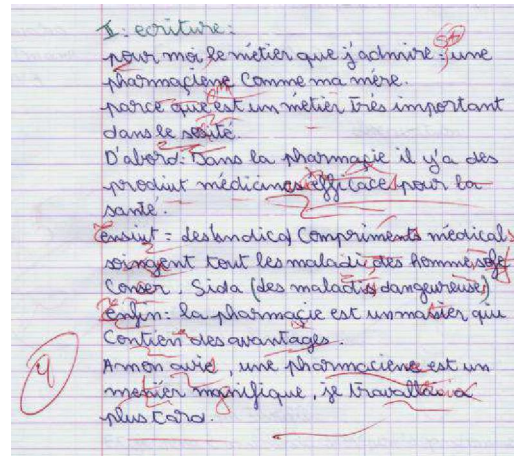 II: ecriture:
pour moi, le métier que j'admire : une
pharmaciene Comme ma mère.
parce que est un métier très important
dans le sosité.
D'abord: Dans la pharmacie il y'a des
produit médicines efficaces pour la
santé.
Ensiut = des Comprimants médicals
soingent tout les maladi des homme
Conser. Sida (des maladis dangeureuse)
Enfin: la pharmacie est un matier qui
Contien des avantages.
A mon avie, une pharmaciene est un
metier magnifique, je travaller a
plus Tard.